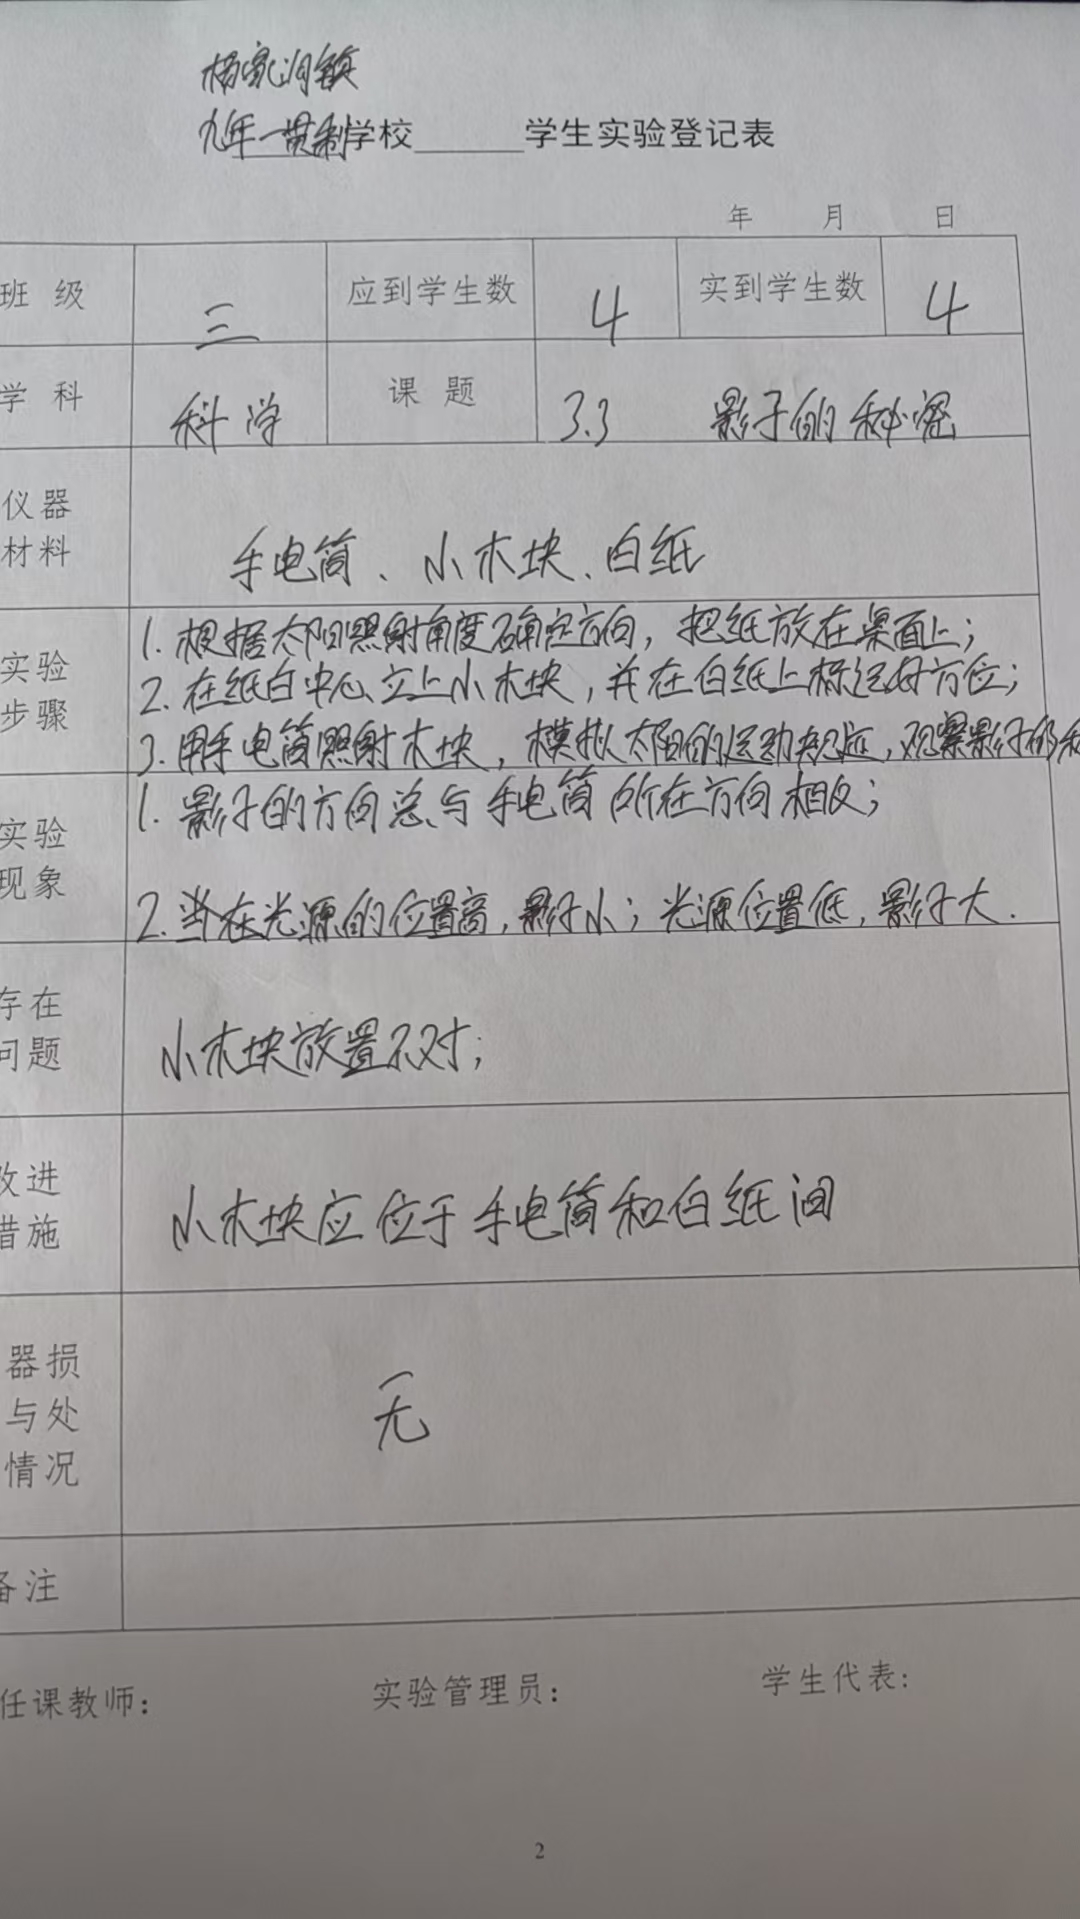 杨家沟镇
九年一贯制学校______学生实验登记表
年 月 日
班 级 三 应到学生数 4 实到学生数 4
学 科 科学 课 题 3.3 影子的秘密
仪器
材料
手电筒、小木块、白纸
实验
步骤
1. 根据太阳照射角度确定方向，把纸放在桌面上；
2. 在纸白中心立上小木块，并在白纸上标运好方位；
3. 用手电筒照射木块，模拟太阳的运动规迹，观察影子的
实验
现象
1. 影子的方向总与手电筒所在方向相反；
2. 当在光源的位置高，影子小；光源位置低，影子大.
存在
问题
小木块放置不对；
改进
措施
小木块应位于手电筒和白纸间
器损
与处
情况
无
备注
任课教师： 实验管理员： 学生代表：
2